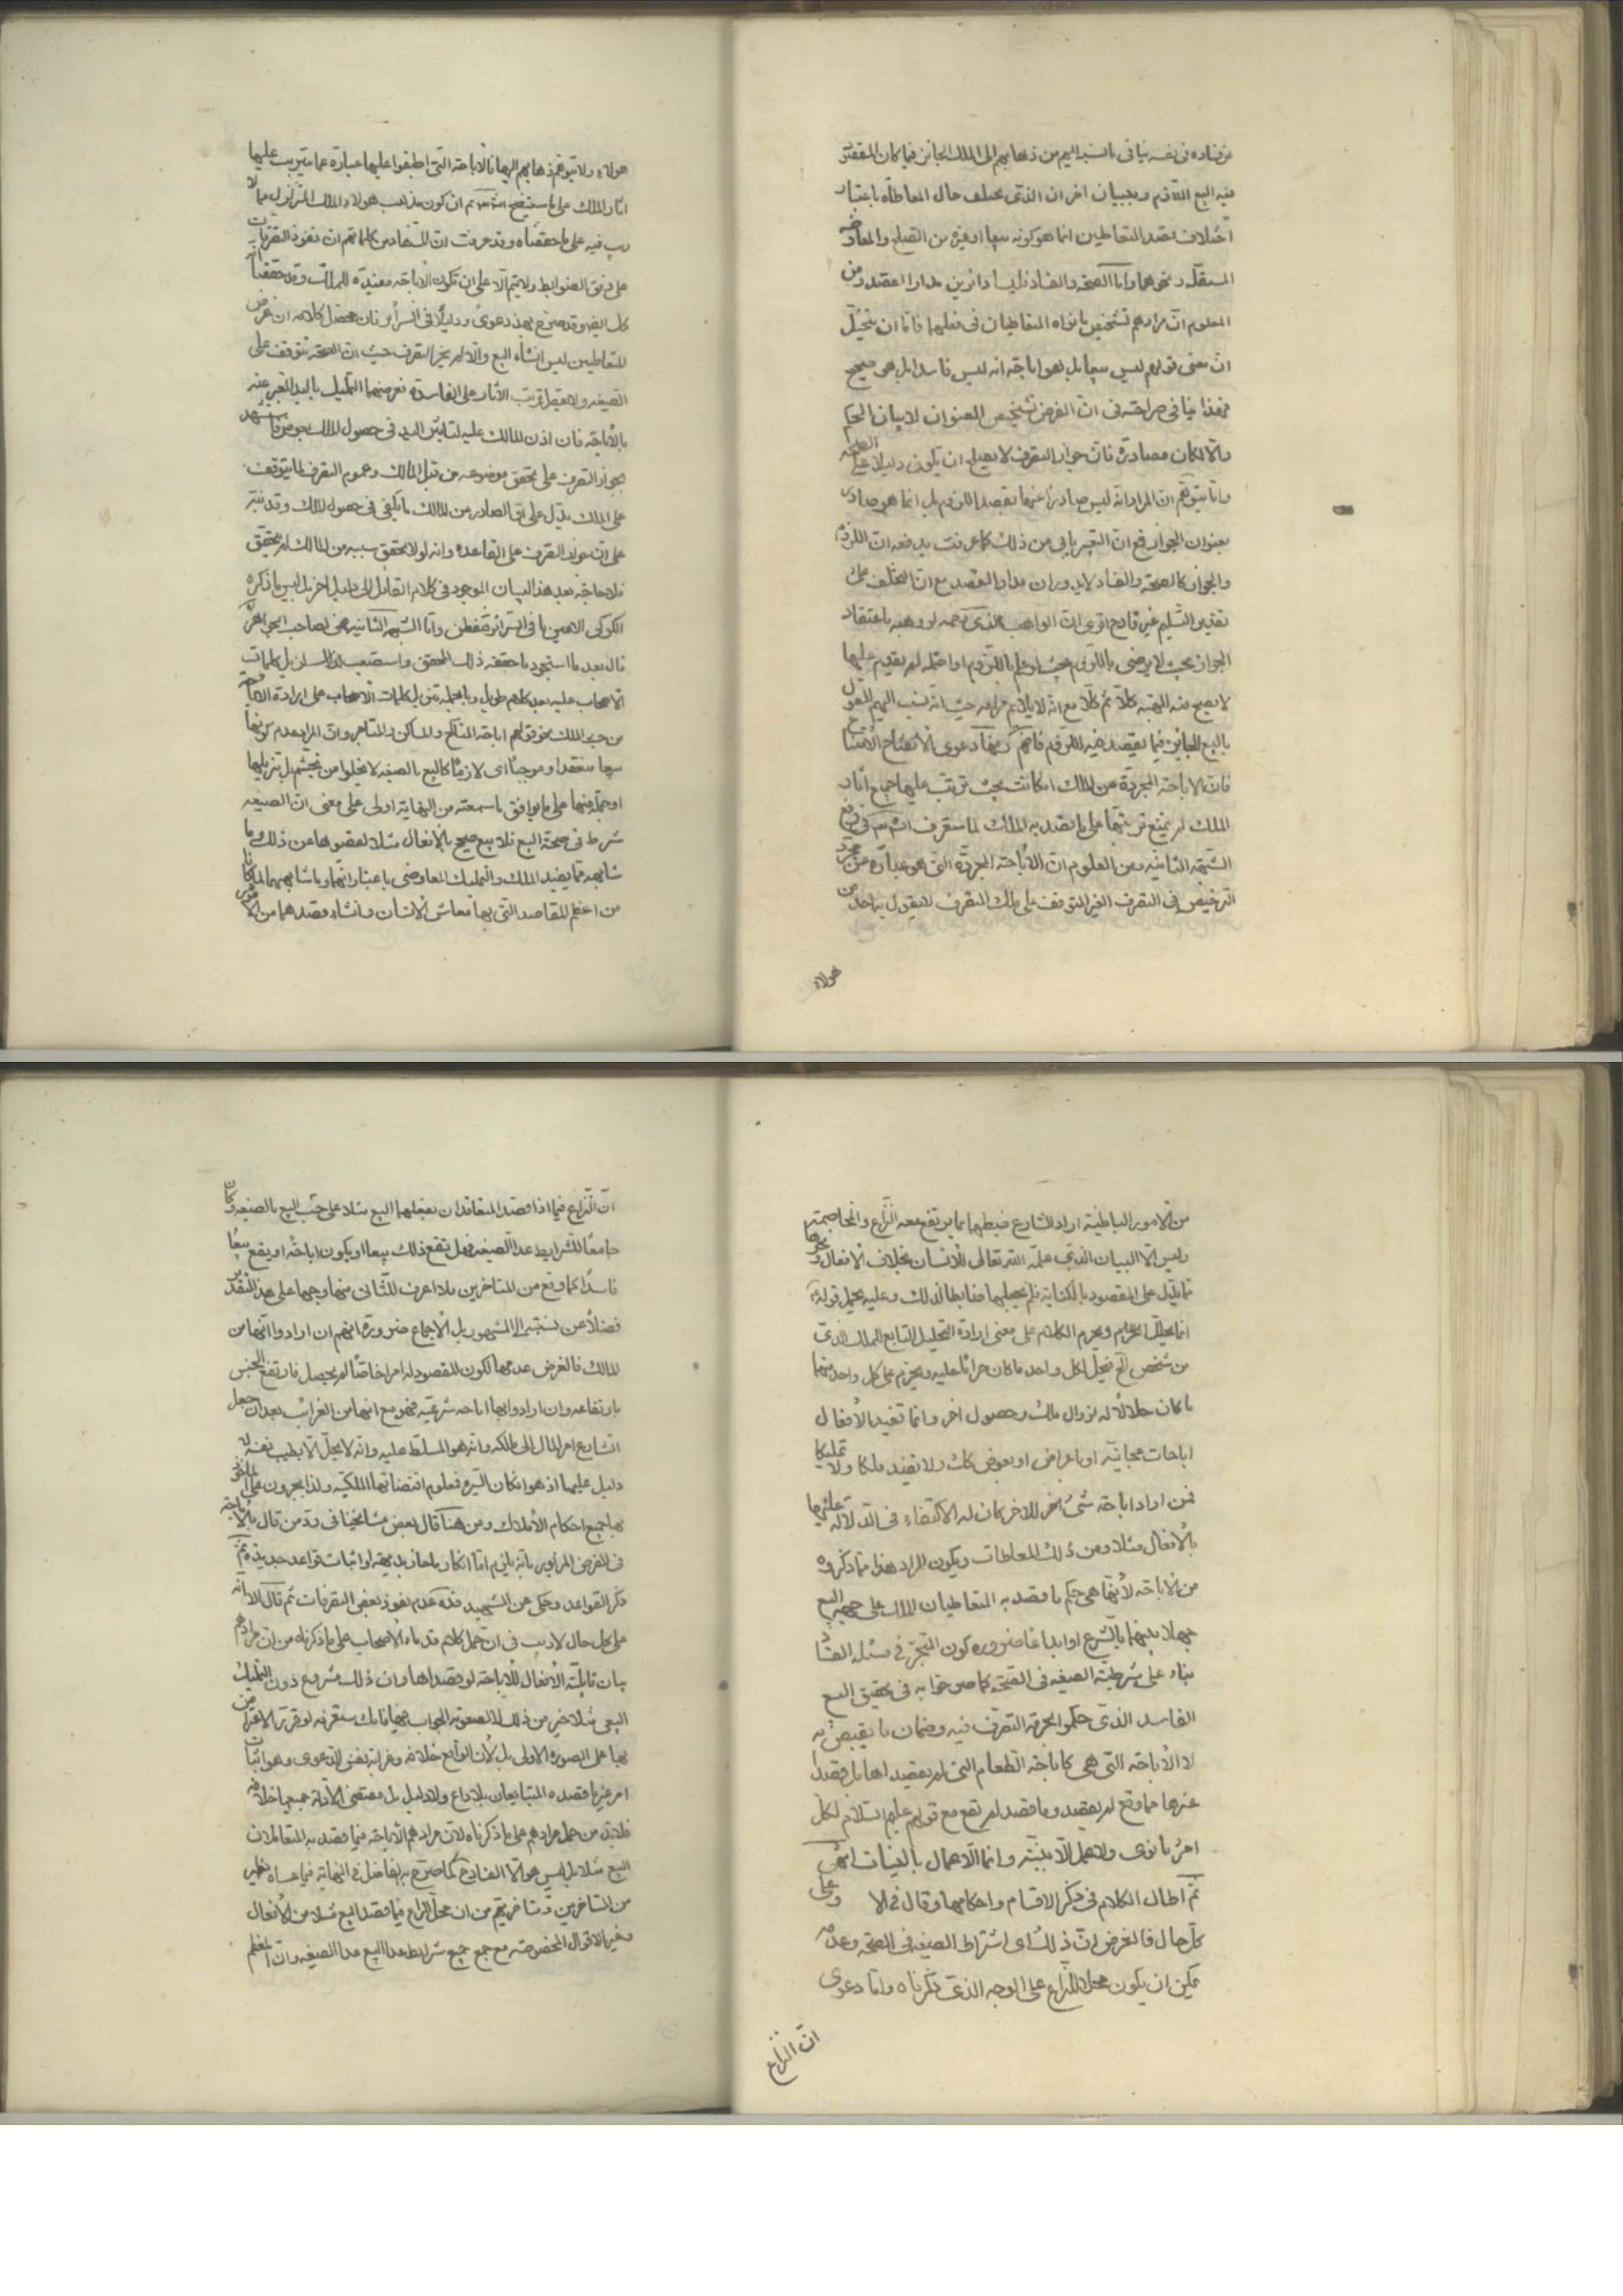 من فساده في نفسه ينافي ما نسب اليهم من ذهابهم الى الملك الجائز فيما كان المقصود
فيه البيع اللازم وببيان اخر ان الذي يختلف حال المعاطاة باعتبار
اختلاف قصد المتعاطيين انما هو كونه بيعا او غيره من الصلح والمعاوضة
المستقلة ونحوهما واما الصحة والفساد فليسا دائرين مدار القصد ومن
المعلوم ان مرادهم تشخيص ما نواه المتعاطيان في فعلهما فاما ان يتخيل
ان معنى قولهم ليس بيعا بل هو اباحة انه ليس فاسدا بل هو صحيح
فهذا ينافي صراحته في ان الغرض تشخيص العنوان لا بيان الحكم
والا لكان مصادرة فان جواز التصرف لا يصلح ان يكون دليلا على الصحة
واما يتوهم ان المراد انه ليس صادرا عنهما بقصد اللزوم بل انما هو صادر
بعنوان الجواز فمع ان التعبير يابى من ذلك كما عرفت يدفعه ان اللزوم
والجواز كالصحة والفساد لا يدوران مدار القصد مع ان التخلف على
تقدير التسليم غير قادح اترى ان الواهب الذي لو وهبه باعتقاد
الجواز بحيث لا يرضى باللزوم بحيث لو علم باللزوم او احتمله لم يقدم عليها
لا يصح منه الهبة كلا ثم كلا مع انه لا يلائم مرامه حيث انه نسب اليهم القول
بالبيع الجائز فيما يقصد فيه اللزوم فافهم ومنها دعوى الافتتاح
فان الاباحة المجردة عن الملك اذا كانت بحيث ترتب عليها جميع اثار
الملك لم يمنع ترتبها على ما قصد به الملك لما ستعرف انشاء الله في دفع
الشبهة الثانية ومن المعلوم ان الاباحة المجردة التي هو عبارة عن مجرد
الترخيص في التصرف الغير المتوقف على ملك التصرف لا يقول به احد من
هولاء
هولاء ولا يتوهم ذهابهم اليها فالاباحة التي اطبقوا عليها عبارة عما يترتب عليها
اثار الملك على ما ستتضح انشاء الله ثم ان كون مذهب هولاء الملك المتزلزل مما لا
ريب فيه على ما حققناه وقد عرفت ان المستفاد من كلماتهم ان نفوذ التصرفات
على وفق الضوابط ولا يتم الا على ان تكون الاباحة مفيدة للملك وقد حققنا
كل ايضا وقد صرح بهذه دعوى ودليلا في السرائر فان محصل كلامه ان غرض
المتعاطيين ليس انشاء البيع والا لم يجز التصرف حيث ان الصحة تتوقف على
الصيغة ولا يعقل ترتب الاثار على الفاسدة نعم منهما التمليك باليد المعبر عنه
بالاباحة فان اذن المالك عليه لتأثير اليد في حصول الملك بعوض
بجواز التصرف على تحقق موضوعه من قبل المالك وعموم التصرف لما يتوقف
على الملك يدل على ان الصادر من المالك ما يكفي في حصول الملك وقد نبه
على ان جواز التصرف على القاعدة وانه لولا تحقق سببه من المالك لم يتحقق
فلا حاجة بعد هذا البيان الموجود في كلام القائل الى دليل اخر بل ليس ما ذكره
الكركي الا عين ما في السرائر فتفطن واما الشبهة الثانية فهي لصاحب الجواهر
قال بعد ما استجود ما حققه ذلك المحقق واستصعب تنزيل كلمات
الاصحاب عليه بعد كلام طويل وبالجملة تنزيل كلمات الاصحاب على ارادة الاباحة
من حيث الملك نحو قولهم اباحة المناكح والمساكن والمتاجر وان المراد عدم كونها
بيعا منعقدا وموجبا اي لازما كالبيع بالصيغة لا يخلوا من تجشم بل تنزيلها
او جملة منها على ما يوافق ما سمعته من النهاية اولى على معنى ان الصيغة
شرط في صحة البيع فلا بيع صحيح بالافعال مثلا لقصورها عن ذلك وما
شابهه مما يفيد الملك والتمليك المعاوضي باعتبار انهما وما شابههما لما كانا
من اعظم المقاصد التي بها معاش الانسان وانشاء وقصدهما من الامور
من الامور الباطنية اراد الشارع ضبطهما بما يرتفع معه النزاع والمخاصمة
وليس الا البيان الذي علمه الله تعالى للانسان بخلاف الافعال ونحوها
مما يدل على المقصود بالكناية فلم يجعلها ضابطا لذلك وعليه يحمل قوله
انما يحلل الكلام ويحرم الكلام على معنى ارادة التحليل التابع للملك الذي
من شخص الخ فيحل لكل واحد ما كان حراما عليه ويحرم على كل واحد منهما
ما كان حلالا له بزوال ملك وحصول اخر وانما تفيد الافعال
اباحات مجانية او باعراض او بعوض كك ولا تفيد ملكا ولا تمليكا
فمن اراد اباحة شيء اخر للاخر كان له الاكتفاء في الدلالة عليها
بالافعال مثلا ومن ذلك المعاطات ويكون المراد هذا مما ذكروه
من الاباحة لا انها هي حكم ما قصد به المتعاطيان الملك على جهة البيع
جهلا منهما بالشرع او ابداعا ضرورة كون المتجه في مسئلة الفساد
بناء على شرطية الصيغة في الصحة كما صرحوا به في تحقيق البيع
الفاسد الذي حكموا بحرمة التصرف فيه وضمان ما يقبض به
لا الاباحة التي هي كاباحة الطعام التي لم يقصداها بل قصدا
غيرها فما وقع لم يقصد وما قصد لم يقع مع قولهم عليهم السلام لكل
امرء ما نوى ولا عمل الا بنية وانما الاعمال بالنيات انتهى
ثم اطال الكلام في ذكر الاقسام واحكامها وقال في الا وعلى
كل حال فالغرض ان ذلك اي اشتراط الصيغة في الصحة وعدمه
يمكن ان يكون محل النزاع على الوجه الذي ذكرناه واما دعوى
ان النزاع
ان النزاع فيما اذا قصد المتعاقدان بفعلهما البيع مثلا على حسب البيع بالصيغة وكان
جامعا للشرايط عدا الصيغة فهل يقع ذلك بيعا او يكون اباحة او يقع بيعا
فاسدا كما وقع من المتاخرين فلا اعرف للثاني منها وجها على هذا التقدير
فضلا عن نسبته الى المشهور بل الاجماع ضرورة انهم ان ارادوا انها من
المالك فالفرض عدمها لكون المقصود له امرا خاصا لم يحصل فارتفع الجنس
بارتفاعه وان ارادوا بها اباحة شرعية فهو مع انها من الغرائب بعد ان جعل
الشارع امر المال الى مالكه وانه هو المسلط عليه وانه لا يحل الا بطيب نفسه لا
دليل عليها اذ هو ان كان السيرة فمعلوم اقتضائها الملكية ولذا يجرون على الماخوذ
بها جميع احكام الاملاك ومن هنا قال بعض مشايخنا في رد من قال بالاباحة
في الفرض المزبور بانه يلزم اما انكار ما جاز بديهة او اثبات قواعد جديدة ثم
ذكر القواعد وحكى عن الشهيد قده عدم نفوذ بعض التصرفات ثم قال الا انه
على كل حال لا ريب في ان حمل كلام قدماء الاصحاب على ما ذكرناه من ان مرادهم
بيان قابلية الافعال للاباحة لو قصداها وان ذلك مشروع دون التمليك
البيعي مثلا خير من ذلك لا لصعوبة الجواب عنها فانك ستعرفه لو قررت الاعتراض
بها على الصورة الاولى بل لان الواقع خلافه وغرابة نفس الدعوى وهو اثبات
امر غير ما قصده المتبايعان بلا داع ولا دليل بل مقتضى الادلة جميعها خلافه
فلا بد من حمل مرادهم على ما ذكرناه لان مرادهم الاباحة فيما قصد به المتعاملان
البيع مثلا بل ليس هو الا الفساد كما صرح به الفاضل في النهاية فما عساه يظهر
من المتاخرين ومتاخريهم من ان محل النزاع فيما قصد البيع مثلا من الافعال
وغير الاقوال المخصوصة مع جمع جميع شرايط عدا البيع عدا الصيغة وان المعظم